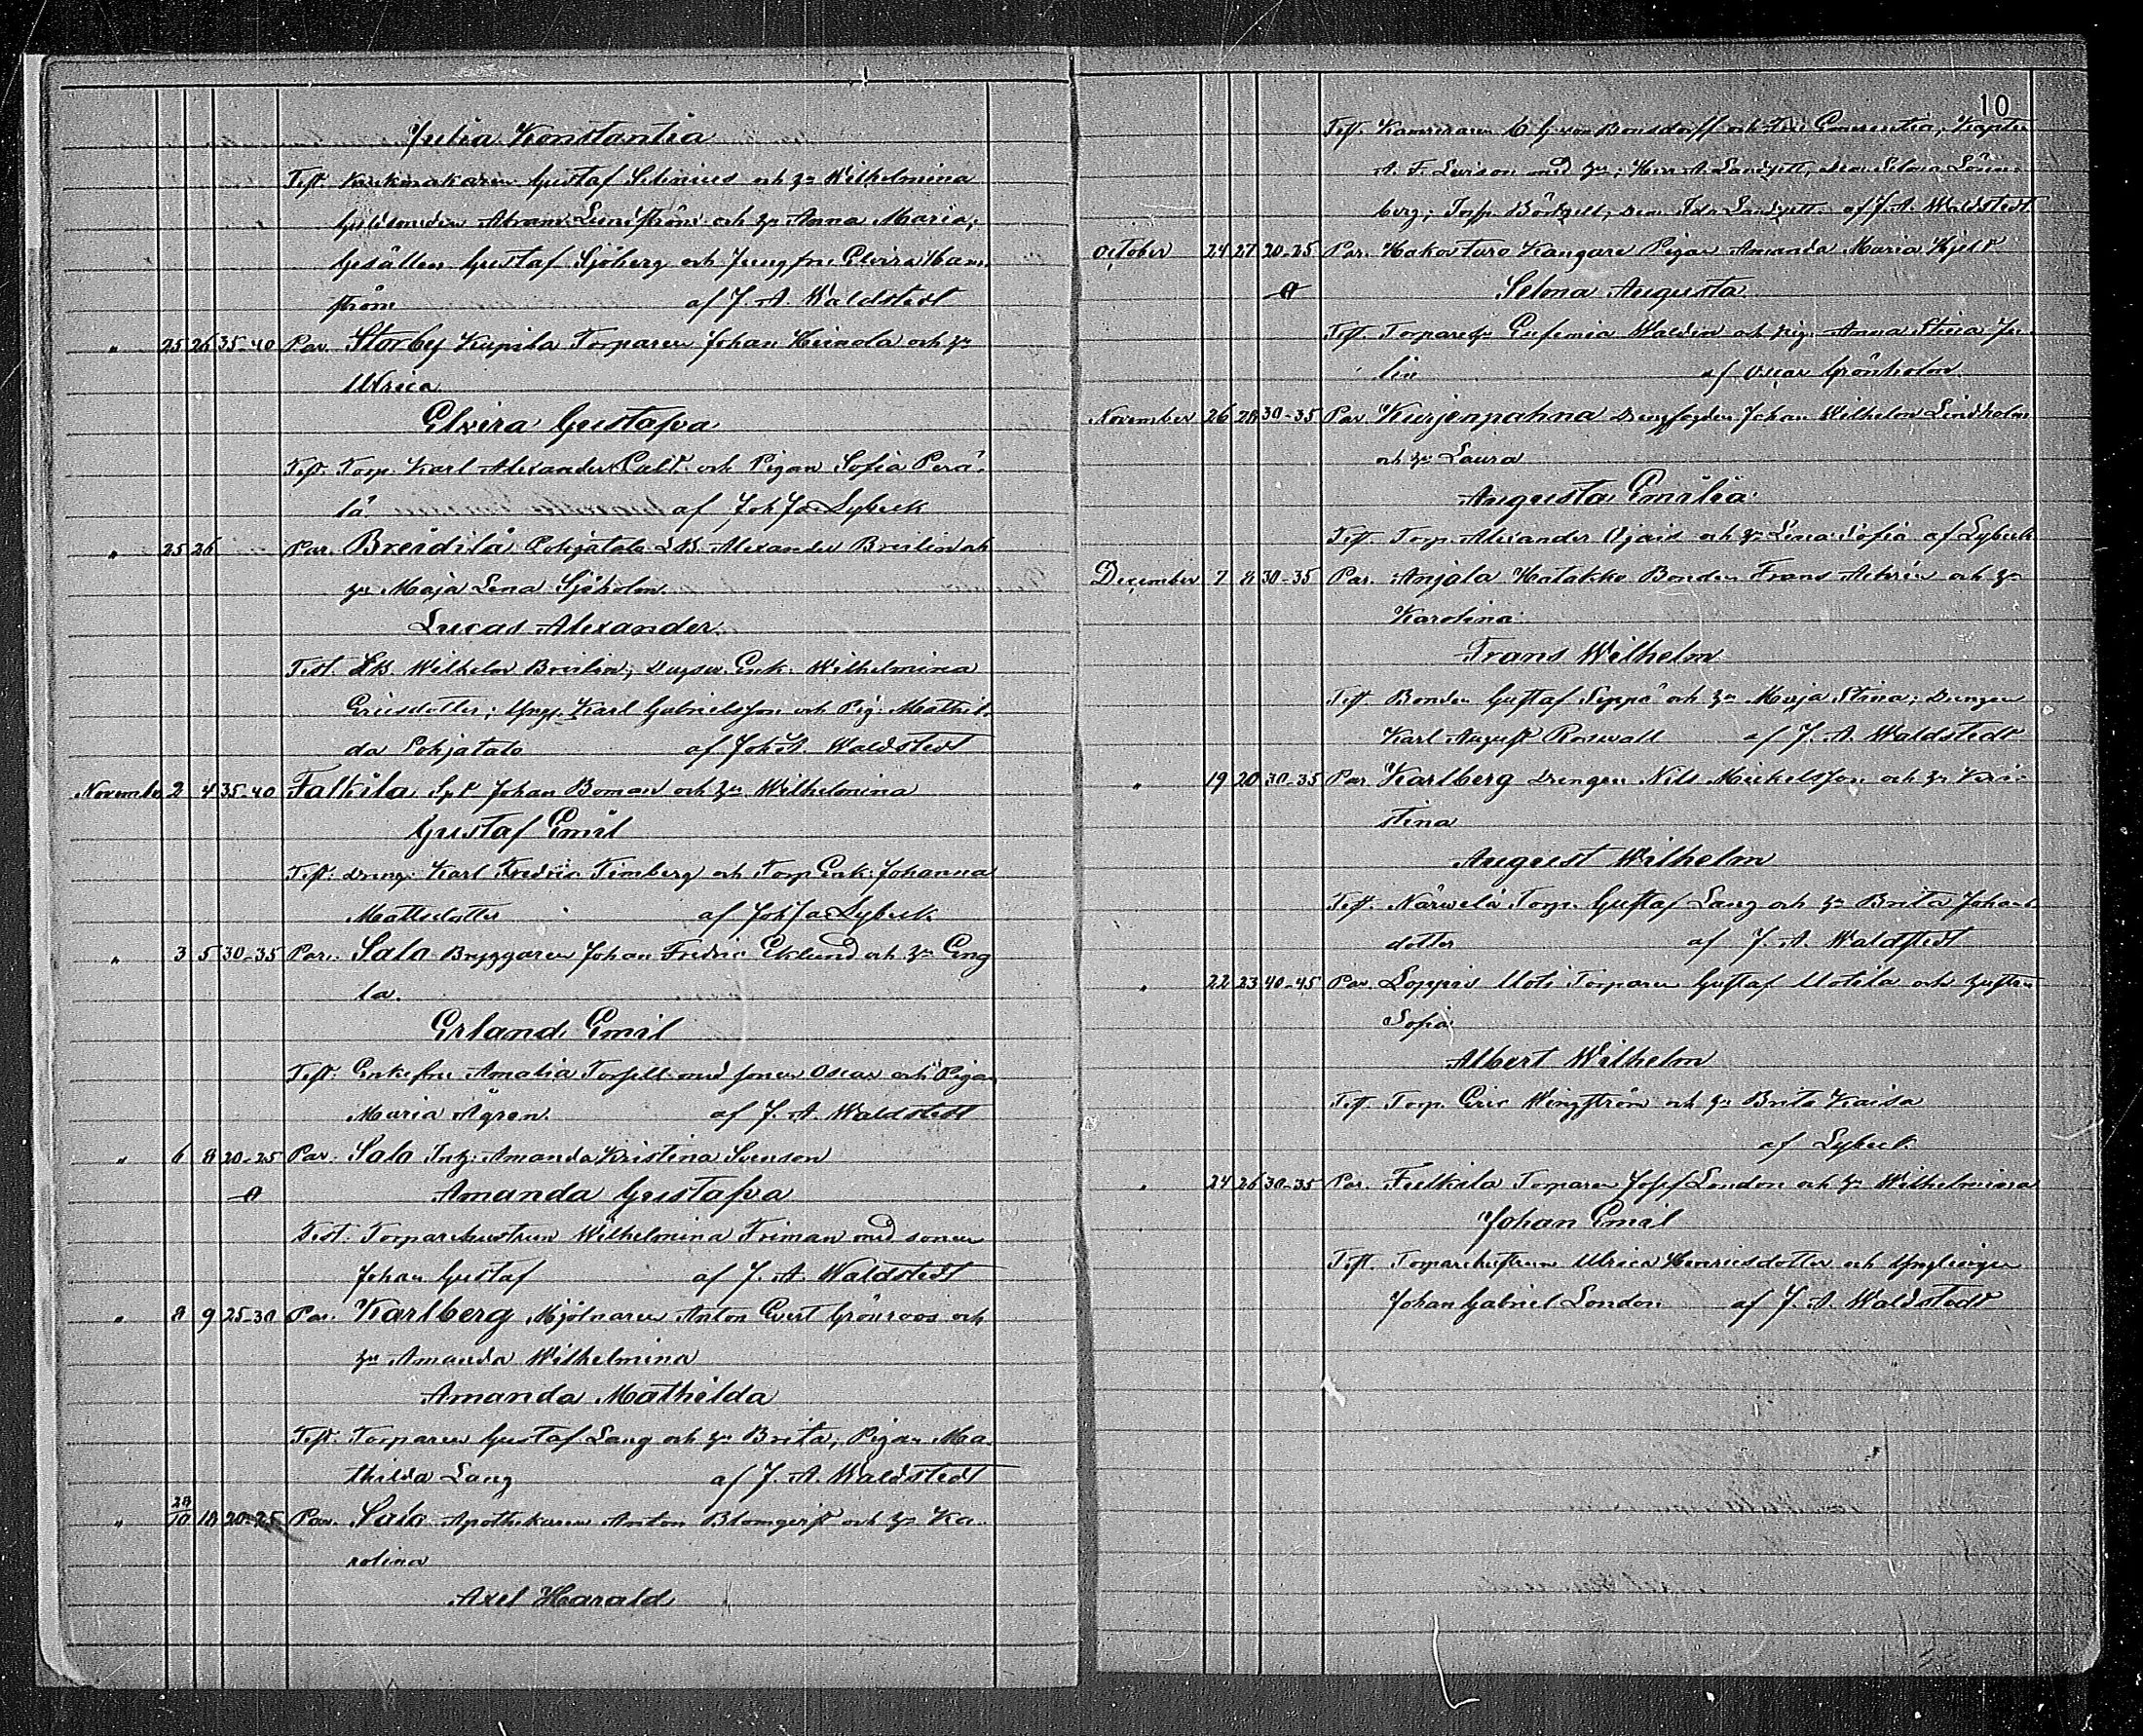 Julia Konstantia
Test. Gustaf Selenius och h. Wilhelmina
Abram Lundström och h. Anna Maria;
Gesällen Gustaf Sjöberg och Jungfru Elvira Ham-
ström af J. A. Waldstedt
" 25 26 35-40 Par. Storby Kupila Torparen Johan Heinola och h.
Ulrica
Elvira Gustafva
Test. Torp. Karl Alexander och Pigan Sofia Perä-
lä af Joh Jac Lybeck
" 25 26 Par. Breidilä Pohjatalo Alexander Breilin och
h. Maja Lena Sjöholm.
Lucas Alexander.
Test. Wilhelm Breilin; Enk. Wilhelmina
Ericsdotter; Yngl. Karl Gabrielsson och Pig. Mathil-
da Pohjatalo af Joh A. Waldstedt
November 2 4 35-40 Falkila Johan Boman och h. Wilhelmina
Gustaf Emil
Test. Dreng. Karl Fredric Timberg och Torp Enk: Johanna
Mattsdotter af Joh Jac Lybeck
" 3 5 30-35 Par. Salo Bryggaren Johan Fredric Eklund och h. Eng
la.
Erland Emil
Test. Enkefru Amalia Torsell med sonen Oscar och Pigan
Maria Ågren. af J. A. Waldstedt
" 6 8 20-25 Par. Salo Inh. Amanda Kristina Svenson
Amanda Gustafva
Test. Torparehustrun Wilhelmina Friman med sonen
Johan Gustaf af J. A. Waldstedt
" 8 9 25-30 Par. Karlberg Mjölnaren Anton Evert Grönroos och
h. Amanda Wilhelmina
Amanda Mathilda
Test. Torparen Gustaf Lang och h. Brita; Pigan Ma-
thilda Lang af J. A. Waldstedt
" 28/10 18 20-25 Par. Salo Apothekaren Anton Blomqvist och h. Ka-
rolina
Axel Harald
10
Test. Kamreraren von Bonsdorff och Emerentia, Kapten
A. F. med h.; Herr A. Selma Lönn-
berg; Ida af J. A. Waldstedt
October 24 27 20-25 Par. Kangare Pigan Amanda Maria
Selma Augusta
Test. Torpareh. Eufemia Waldin och pig. Anna Stina Ju-
lin af Oscar Grönholm
November 26 28 30-35 Par. Kurjenpahna Drengfogden Johan Wilhelm Lindholm
och h. Laura
Augusta Emilia
Test. Torp. Alexander Ojais och h. Lina Sofia af Lybeck
December 7 8 30-35 Par. Anjala Hatakko Bonden Frans och h.
Karolina
Frans Wilhelm
Test. Bonden Gustaf Seppä och h. Maja Stina; Drengen
Karl August Roswall af J. A. Waldstedt
" 19 20 30-35 Par. Karlberg Drengen Nils Mickelsson och h. Kri-
stina
August Wilhelm
Test. Närvelä Torp. Gustaf Lang och h. Brita Johans-
dotter af J. A. Waldstedt
" 22 23 40-45 Par. Loppis Uoti Torparen Gustaf Uotila och hustru
Sofia
Albert Wilhelm
Test. Torp. Eric Wingström och h. Brita Kaisa
af Lybeck
" 24 26 30-35 Par. Falkila Torparen Josef London och h. Wilhelmina
Johan Emil
Test. Torparehustrun Ulrica Henricsdotter och Ynglingen
Johan Gabriel London af J. A. Waldstedt